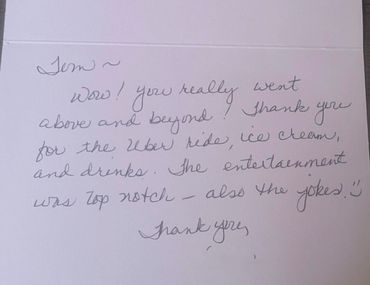 Tom ~
Wow! you really went
above and beyond! Thank you
for the Uber ride, ice cream,
and drinks. The entertainment
was top notch — also the jokes. :)
Thank you,